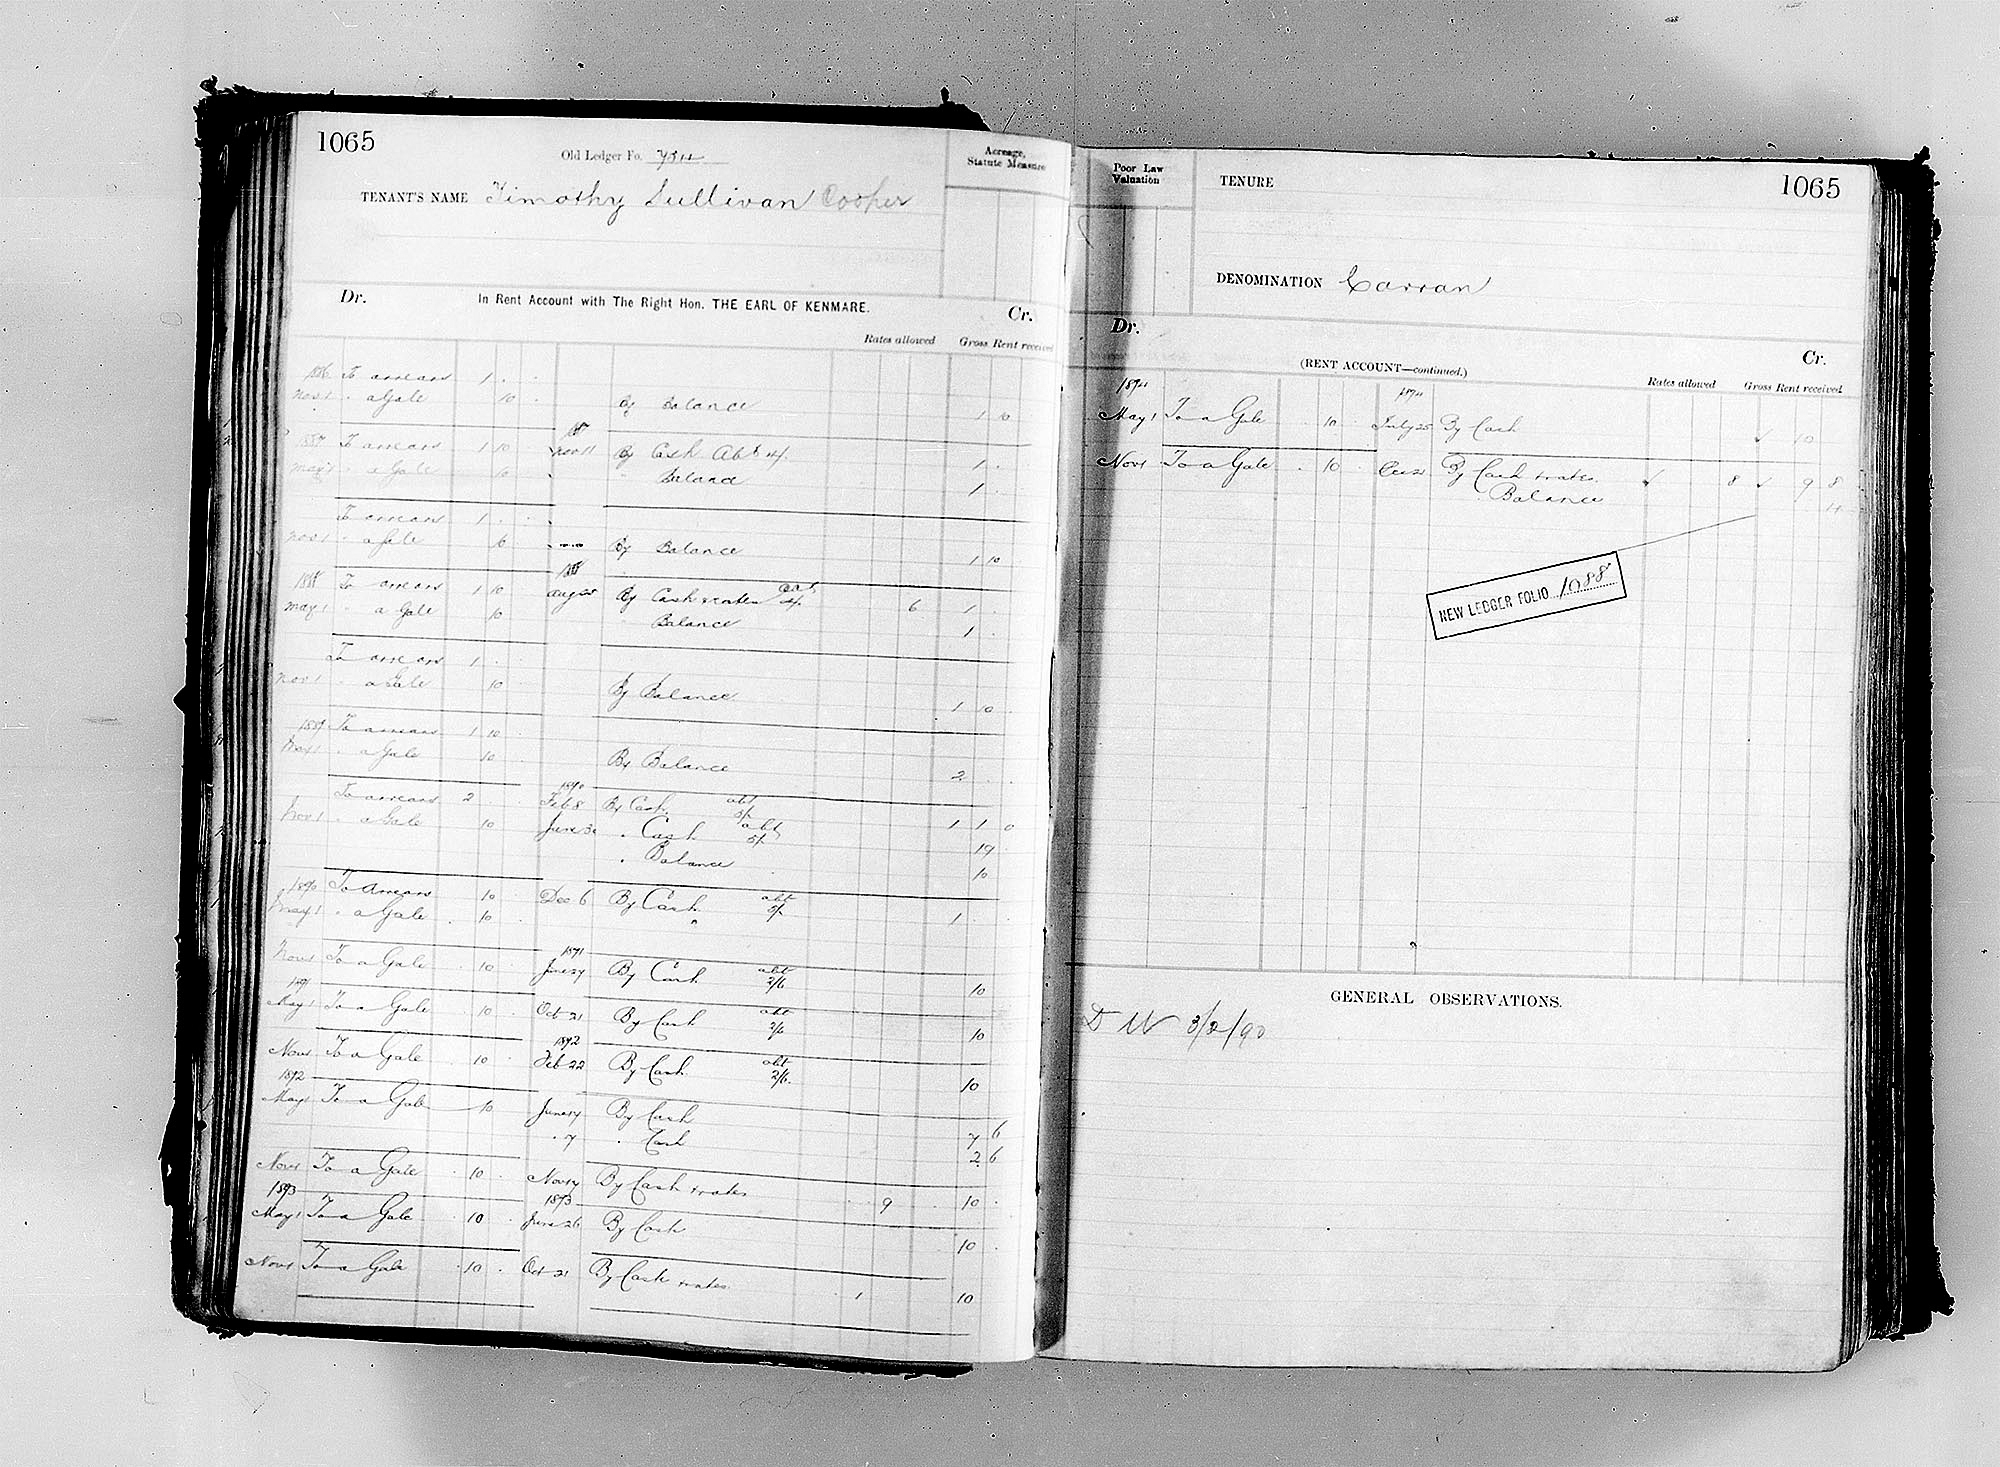 1065
Old Ledger Fo.
TENANT'S NAME Timothy Sullivan Cooper
Acreage,
Statute Measure
Dr. In Rent Account with The Right Hon. THE EARL OF KENMARE. Cr.
Rates allowed Gross Rent received
1886 To arrears 1 . .
Nov 1 " a Gale 10 . By Balance 1 10
1887 To arrears 1 10 1887 Nov 11 By Cash Abt 4/. 1 .
May 1 " a Gale 10 . " Balance 1 .
To arrears 1 . .
Nov 1 " a Gale By Balance 1 10
1888 To arrears 1 10 1888 Aug 25 By Cash & rates 6 1 .
May 1 " a Gale 10 Balance 1 .
To arrears 1 . .
Nov 1 " a Gale 10 By Balance 1 10 .
1889 To arrears 1 10 .
May 1 " a Gale 10 By Balance 2 . .
To arrears 2 . . 1890 Feb 8 By Cash abt 5/. 1 1 0
Nov 1 " a Gale 10 June 30 " Cash abt 5/. 19 .
" Balance 10
1890 To Arrears 10 . Dec 6 By Cash abt 5/. 1 . .
May 1 " a Gale . 10 .
Nov 1 To a Gale . 10 . 1891 June 27 By Cash abt 2/6 10
1891
May 1 To a Gale . 10 . Oct 21 By Cash abt 2/6 10
Nov 1 To a Gale . 10 . 1892 Feb 22 By Cash abt 2/6. 10
1892
May 1 To a Gale 10 June 17 By Cash 7 6
" 7 " Cash 2 6
Nov 1 To a Gale . 10 . Nov 17 By Cash & rates 9 10 .
1893
May 1 To a Gale . 10 . 1893 June 26 By Cash 10 .
Nov 1 To a Gale . 10 . Oct 21 By Cash & rates 1 10
Poor Law
Valuation
TENURE
1065
DENOMINATION Carran
Dr. (RENT ACCOUNT—continued.) Cr.
Rates allowed Gross Rent received
1894 1894
May 1 To a Gale . 10 . July 25 By Cash 10
Nov 1 To a Gale . 10 . Oct 21 By Cash & rates 8 9 8
" Balance . 4
NEW LEDGER FOLIO 1088
GENERAL OBSERVATIONS.
D W 3/2/90